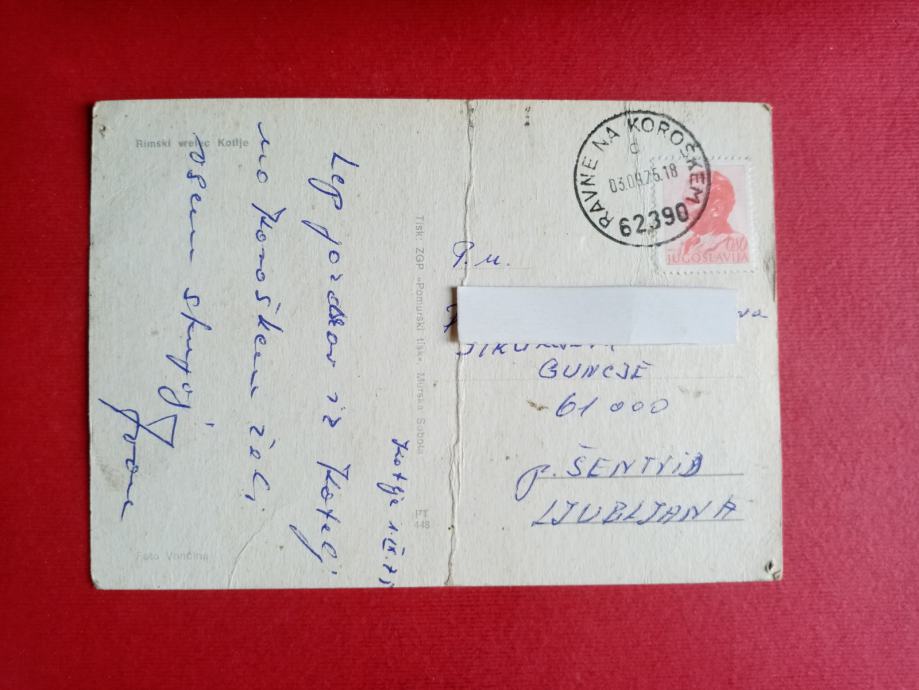 Rimski vrelec Kotlje
Lep pozdrav iz Kotelj
na Koroškem želi
vsem skupaj
Kotlje 1.IX.75
Foto Vončina
Tisk ZGP »Pomurski tisk« Murska Sobota
PT
448
RAVNE NA KOROŠKEM
c
03.09.75.18
62390
0,80
JUGOSLAVIJA
P.n.
GUNCJE
61 000
p. ŠENTVID
LJUBLJANA